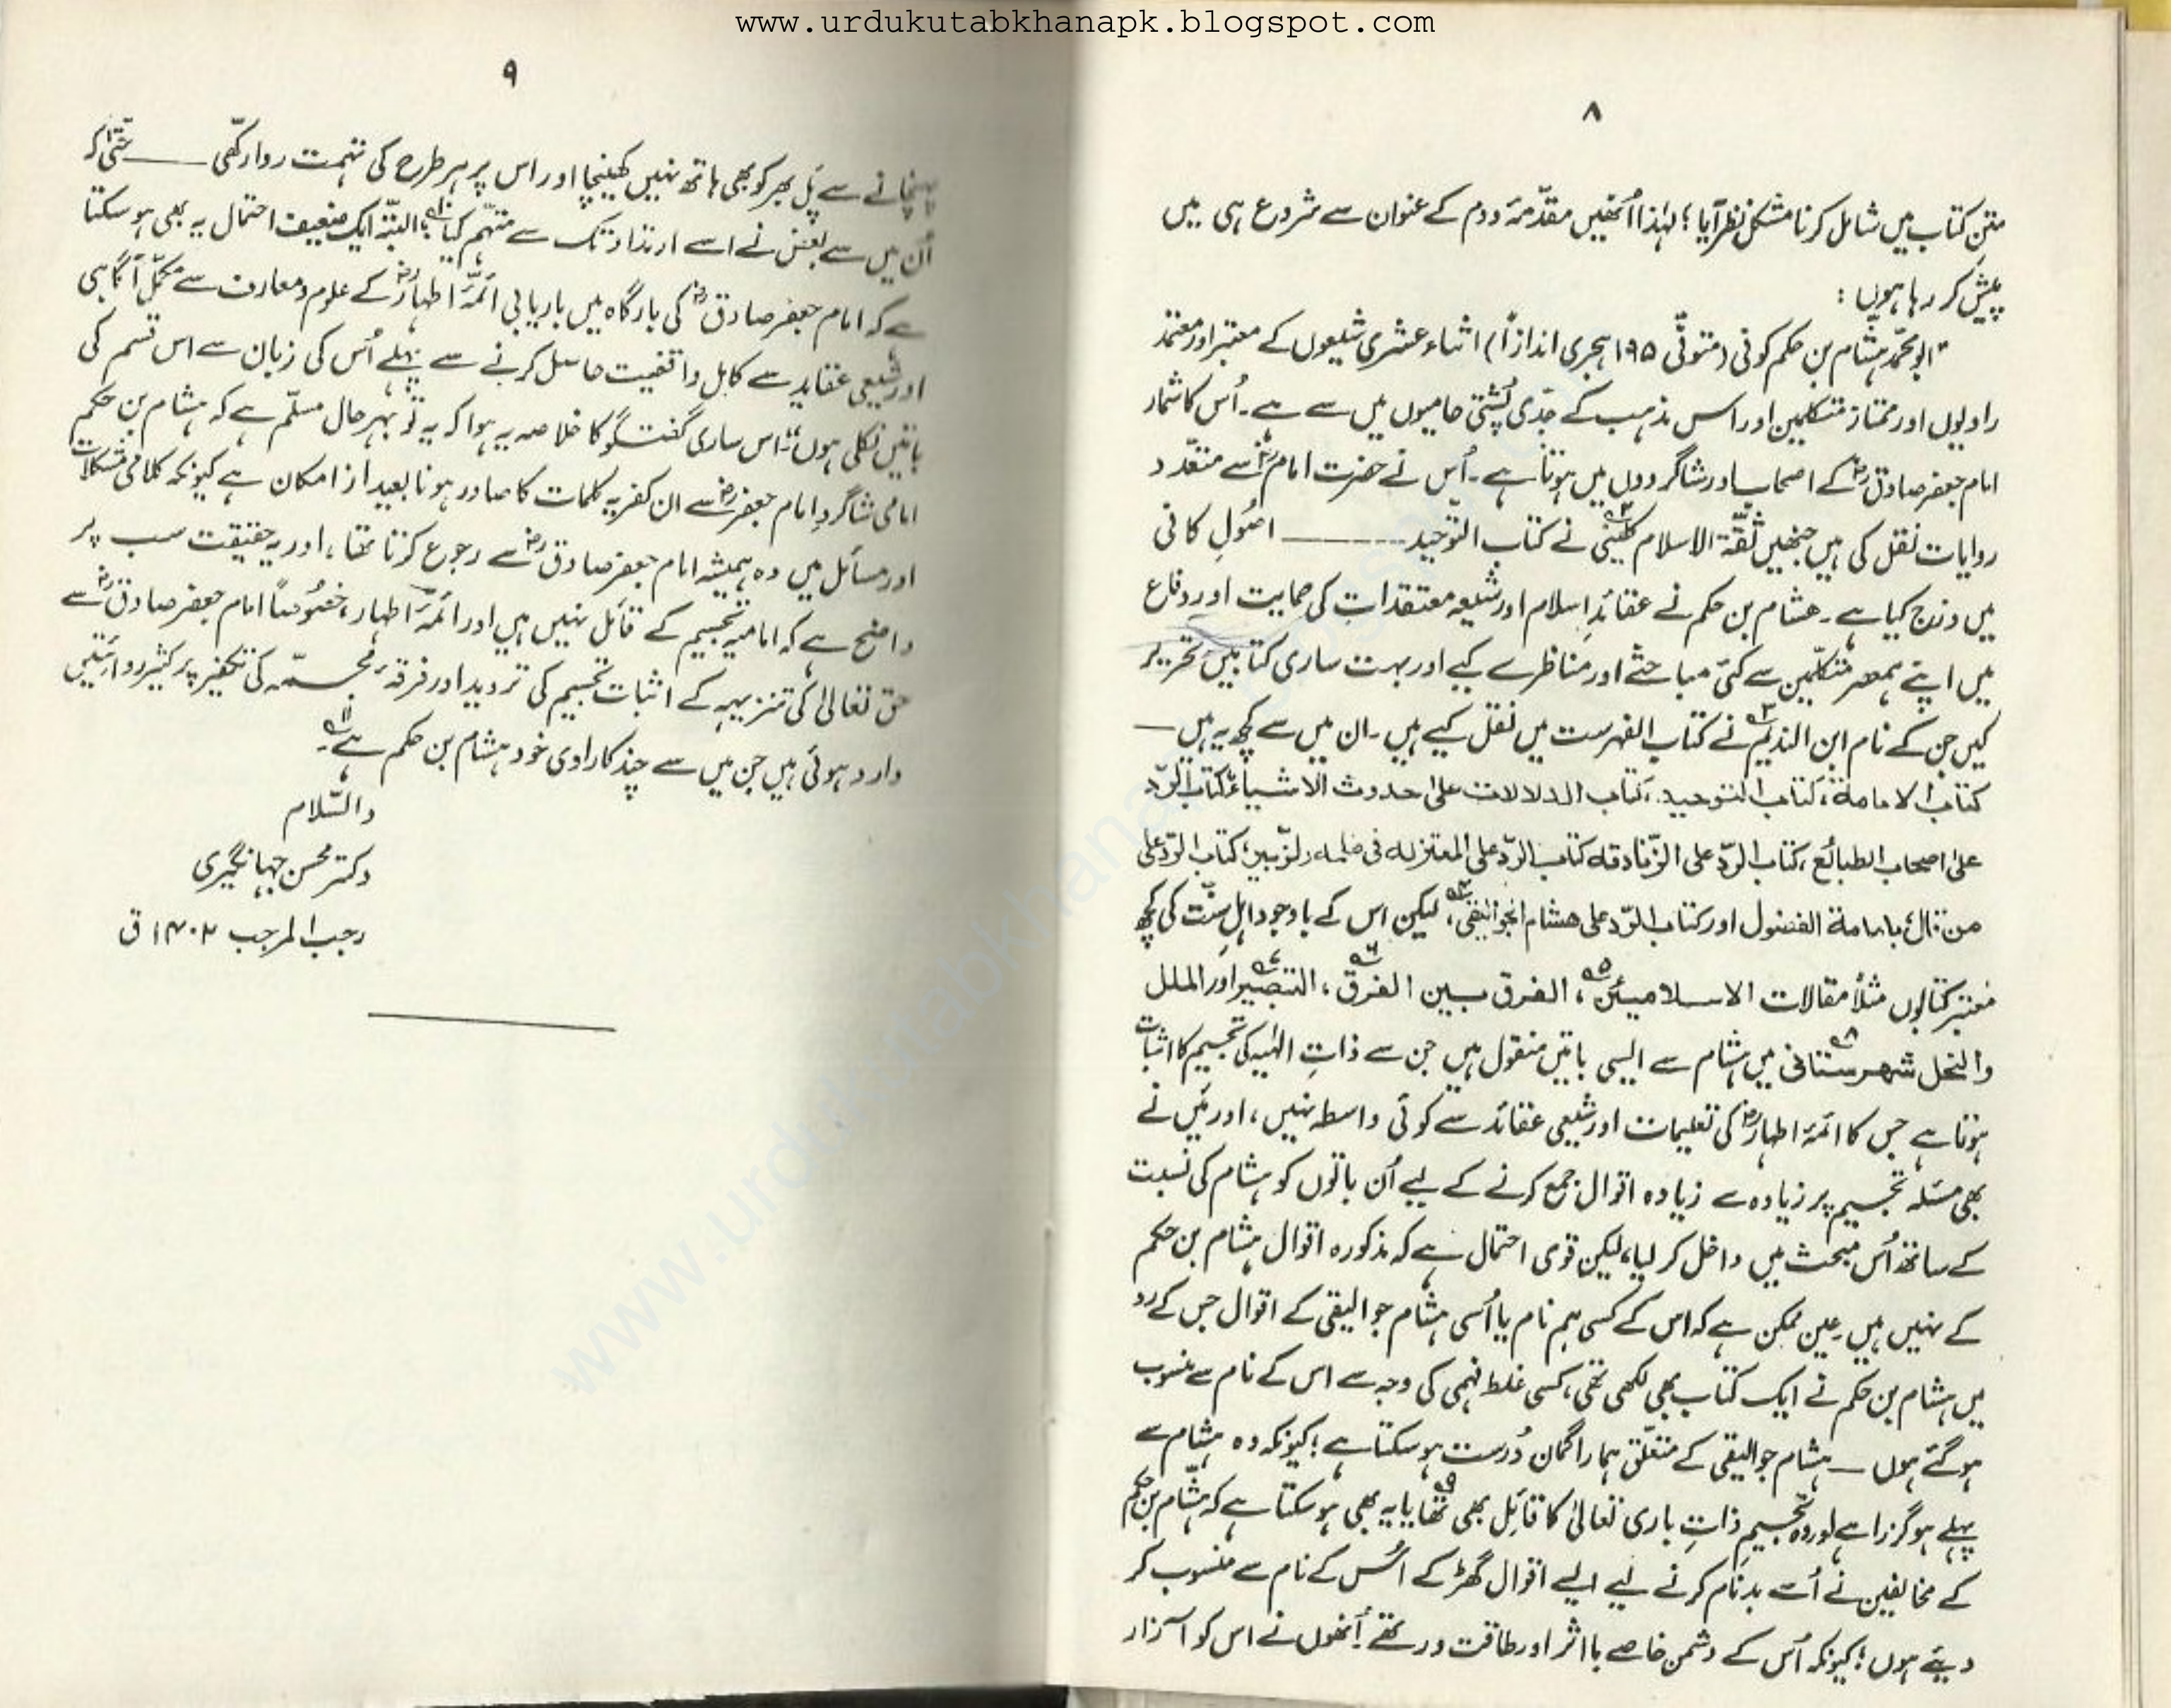 www.urdukutabkhanapk.blogspot.com
۸
متنِ کتاب میں شامل کرنا مشکل نظر آیا؛ لہٰذا اُنھیں مقدّمۂ دوم کے عنوان سے شروع ہی میں
پیش کر رہا ہوں :
"ابو محمّد ہشّام بن حکم کوفی (متوفّی ۱۹۵ ہجری اندازاً) اثناء عشری شیعوں کے معتبر اور معتمد
راویوں اور ممتاز متکلمین اور اس مذہب کے جدّی پُشتی حامیوں میں سے ہے۔ اُس کا شمار
امام جعفر صادقؓ کے اصحاب اور شاگردوں میں ہوتا ہے۔ اُس نے حضرت امامؓ سے متعدّد
روایات نقل کی ہیں جنھیں ثقۃ الاسلام کلینیؒ۲ نے کتاب التوحید ——— اصُولِ کافی
میں درج کیا ہے۔ ھشام بن حکم نے عقائدِ اسلام اور شیعہ معتقدات کی حمایت اور دفاع
میں اپنے ہمعصر متکلّمین سے کئی مباحثے اور مناظرے کیے اور بہت ساری کتابیں تحریر
کیں جن کے نام ابن الندیم۳ نے کتاب الفہرست میں نقل کیے ہیں۔ ان میں سے کچھ یہ ہیں —
کتاب الامامۃ، کتاب التوحید، کتاب الدلالات علیٰ حدوث الاشیاء، کتاب الردّ
علیٰ اصحاب الطبائع، کتاب الردّ علی الزّنادقہ کتاب الردّ علی المعتزلہ فی طلحہ والزّبیر، کتاب الردّ علی
من قال بامامۃ الفضول اور کتاب الردّ علی ھشام الجوالیقی۴، لیکن اس کے باوجود اہلِ سنّت کی کچھ
معتبر کتابوں مثلاً مقالات الاسلامیین۵، الفرق بین الفرق۶، التبصیر۷ اور الملل
والنحل شہرستانی۸ میں ہشام سے ایسی باتیں منقول ہیں جن سے ذاتِ الٰہیہ کی تجسیم کا اثبات
ہوتا ہے جس کا ائمّۂ اطہارؓ کی تعلیمات اور شیعی عقائد سے کوئی واسطہ نہیں، اور مَیں نے
بھی مسئلہ تجسیم پر زیادہ سے زیادہ اقوال جمع کرنے کے لیے اُن باتوں کو ہشام کی نسبت
کے ساتھ اُس مبحث میں داخل کر لیا، لیکن قوی احتمال ہے کہ مذکورہ اقوال ہشام بن حکم
کے نہیں ہیں۔ عین ممکن ہے کہ اس کے کسی ہم نام یا اُسی ہشام جوالیقی کے اقوال جس کے رد
میں ہشام بن حکم نے ایک کتاب بھی لکھی تھی، کسی غلط فہمی کی وجہ سے اس کے نام سے منسوب
ہو گئے ہوں — ہشام جوالیقی کے متعلّق ہمارا گمان دُرست ہو سکتا ہے؛ کیونکہ وہ ہشام سے
پہلے ہو گزرا ہے اور وہ تجسیمِ ذاتِ باری تعالیٰ کا قائل بھی تھا۹ یا یہ بھی ہو سکتا ہے کہ ہشّام بن حکم
کے مخالفین نے اُسے بدنام کرنے لیے ایسے اقوال گھڑ کے اُس کے نام سے منسوب کر
دیئے ہوں؛ کیونکہ اُس کے دشمن خاصے بااثر اور طاقت ور تھے۔ اُنھوں نے اس کو آزار
۹
پہنچانے سے پَل بھر کو بھی ہاتھ نہیں کھینچا اور اس پر ہر طرح کی تہمت روا رکھی —— حتّٰی کہ
اُن میں سے بعض نے اسے ارتداد تک سے متہم کیا۱۰؛ البتّہ ایک ضعیف احتمال یہ بھی ہو سکتا
ہے کہ امام جعفر صادقؓ کی بارگاہ میں باریابی ائمّۂ اطہارؓ کے علوم و معارف سے مکمّل آگاہی
اور شیعی عقاید سے کابل واقفیت حاصل کرنے سے پہلے اُس کی زبان سے اس قسم کی
باتیں نکلی ہوں"۔ اس ساری گفتگو کا خلاصہ یہ ہوا کہ یہ تو بہرحال مسلّم ہے کہ ہشام بن حکم
امامی شاگردِ امام جعفرؓ سے ان کفریہ کلمات کا صادر ہونا بعید از امکان ہے کیونکہ کلامی مشکلات
اور مسائل میں وہ ہمیشہ امام جعفر صادقؓ سے رجوع کرتا تھا، اور یہ حقیقت سب پر
واضح ہے کہ امامیہ تجسیم کے قائل نہیں ہیں اور ائمّۂ اطہار، خصُوصاً امام جعفر صادقؓ سے
حق تعالیٰ کی تنزیہہ کے اثبات تجسیم کی تردید اور فرقۂ مُجسمّہ کی تکفیر پر کثیر روائتیں
وارد ہوئی ہیں جن میں سے چند کا راوی خود ہشام بن حکم ہے۱۱۔
والسّلام
دکتر محسن جہانگیری
رجب المرجب ۱۴۰۲ ق
www.urdukutabkhanapk.blogspot.com